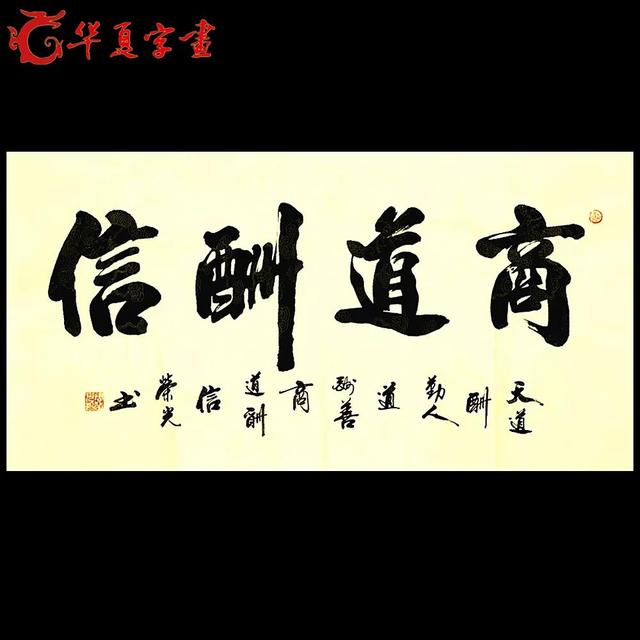 华夏字画
商道酬信
天道酬勤人道酬善商道酬信荣光书